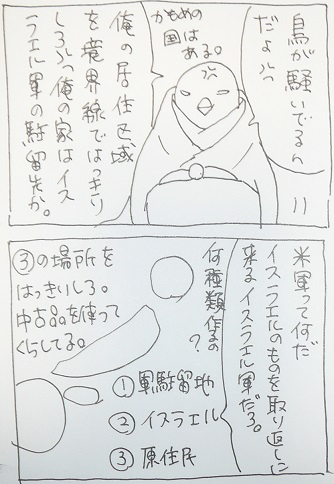 鳥が騒いでるん
だよぅ
かもめの
国は
ある。
俺の居住区域
を境界線ではっきり
しろぅ俺の家はイス
ラエル軍の駐留先か。
米軍って何だ
イスラエルのものを取り返しに
来るイスラエル軍だろ。
何種類作るの
？
③の場所を
はっきいしろ。
中古品を使って
くらしてる。
①軍駐留地
②イスラエル
③原住民